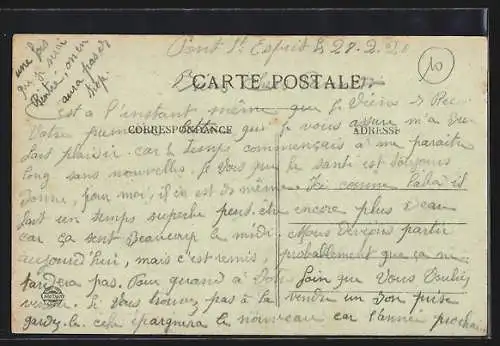 une fois
que je serai
Rentré, on en
aura pas de
trop
Pont St Esprit le 28.2.20
10
CARTE POSTALE
est à l'instant même que je Viens de Rece
Votre première lettre que je vous assure m'a Bien
CORRESPONDANCE
ADRESSE
fait plaisir car le temps commençais à me paraître
long sans nouvelles. Je Vois que la santé est toujours
Bonne, pour moi, il en est de même. Ici comme labas il
fait un temps superbe peut être encore plus Beau
car ça sent Beaucoup le midi. Nous Devions partir
aujourd'hui, mais c'est remis, probablement que ça ne
tardera pas. Pour quand à Votre foin que Vous Vouliez
vendre. Si vous trouvez pas à la vendre un Bon prix
gardez le cela épargnera le nouveau car l'année prochai